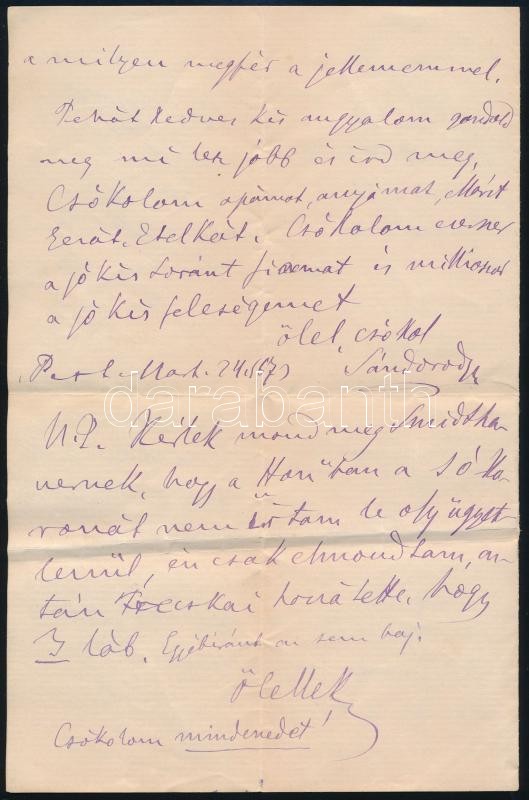 a milyen megfér a jellememmel.
Tehát kedves kis angyalom gondold
meg mi lesz jobb és ird meg.
Csókolom apámat, anyámat, Márit
Etelkát. Csókolom ezerszer
a jó kis Loránt fiamat és milliószor
a jó kis feleségemet
ölel, csókol
Pest. Mart. 24.
Sándorod
darabanth
N.B. Kérlek mond meg
nernek, hogy a Honban a Sóka-
ronát nem irtam le oly ügyet-
lenül, én csak elmondtam, az-
tán Frecskai hozzátette, hogy
láb. Egyébiránt az sem baj.
ölellek
Csókolom mindenedet!